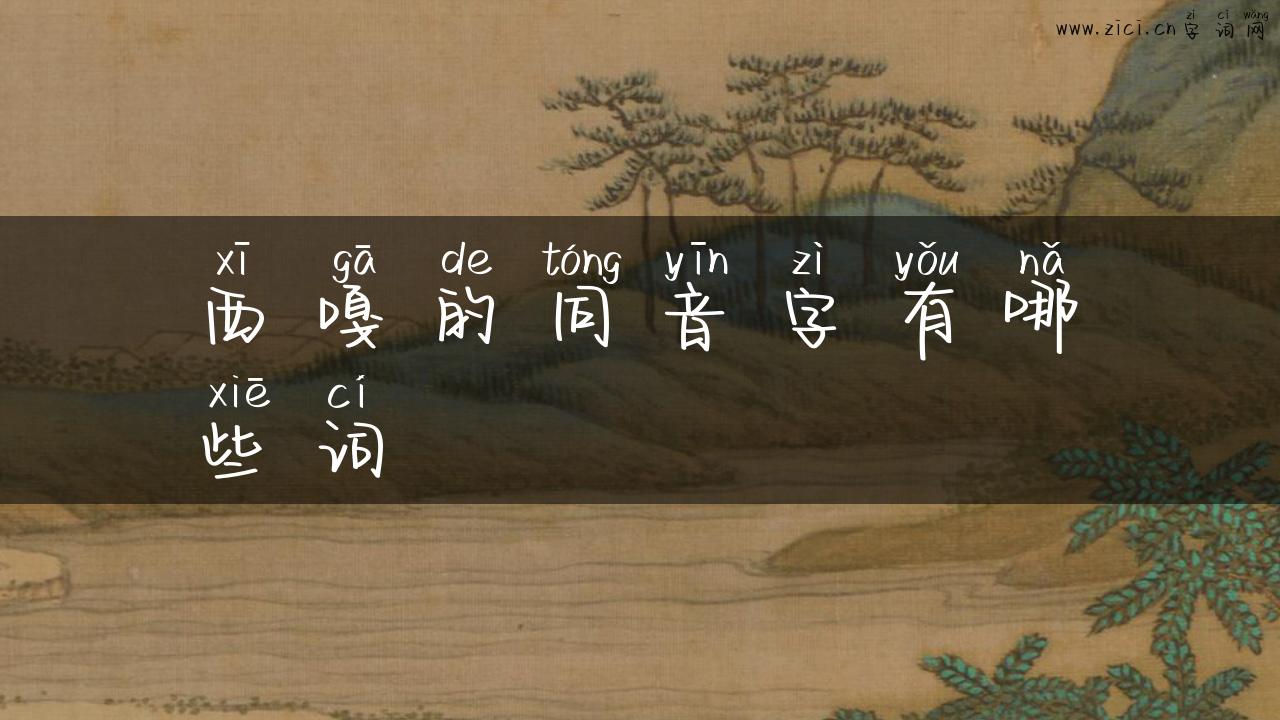 zì cí wǎng
www.zici.cn 字词网
xī gā de tóng yīn zì yǒu nǎ
西嘎的同音字有哪
xiē cí
些词